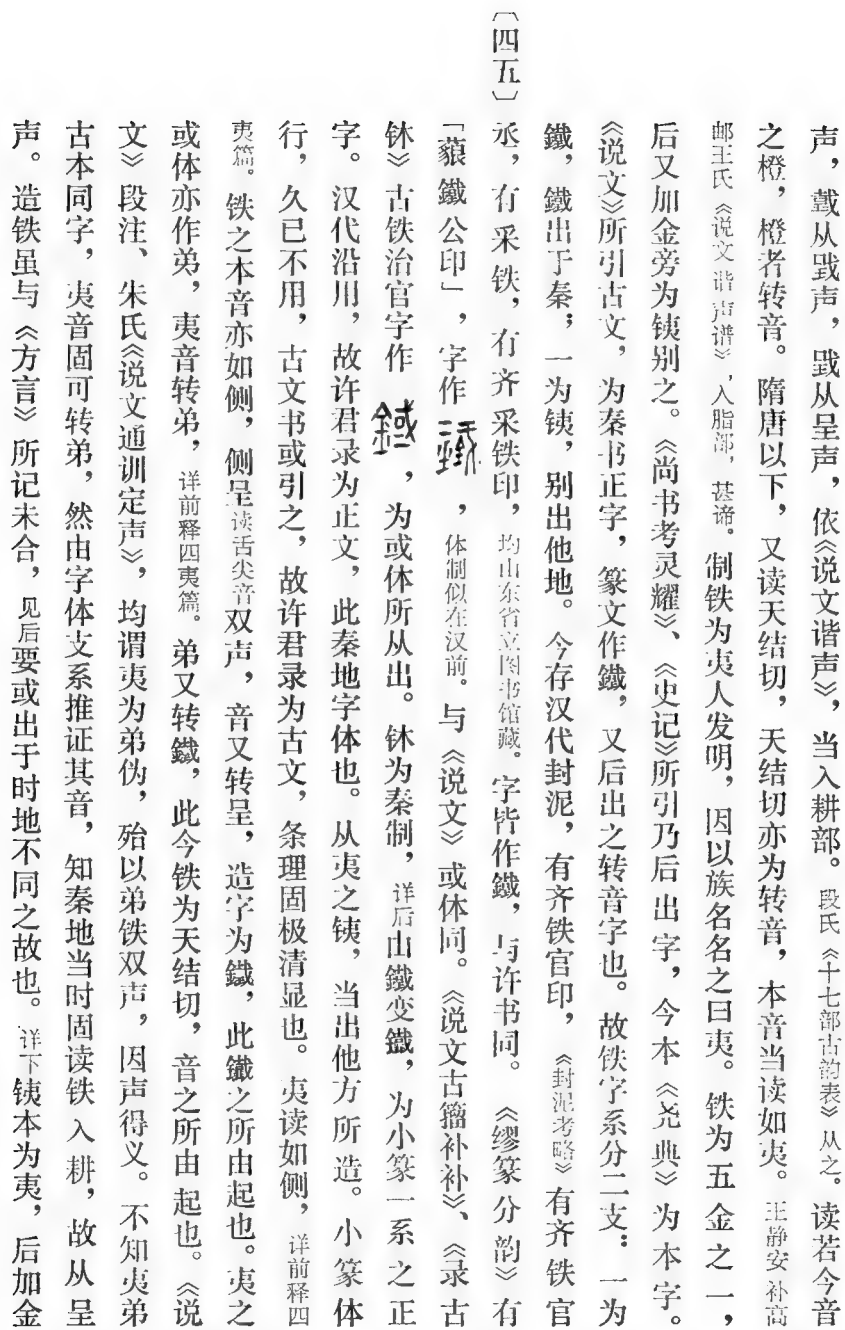 声，戴从戥声，戥从呈声，依《说文谐声》，当入耕部。段氏《十七部古韵表》从之。读若今音
之橙，橙者转音。隋唐以下，又读天结切，天结切亦为转音，本音当读如夷。王静安补高
邮王氏《说文谐声谱》，入脂部，甚谛。制铁为夷人发明，因以族名名之曰夷。铁为五金之一，
后又加金旁为铗别之。《尚书考灵耀》、《史记》所引乃后出字，今本《尧典》为本字。
《说文》所引古文，为秦书正字，篆文作鐵，又后出之转音字也。故铁字系分二支：一为
鐵，鐵出于秦；一为銕，别出他地。今存汉代封泥，有齐铁官印，《封泥考略》有齐铁官
〔四五〕丞，有采铁，有齐采铁印，均山东省立图书馆藏。字皆作鐵，与许书同。《缪篆分韵》有
「藐鐵公印」，字作，体制似在汉前。与《说文》或体同。《说文古籀补补》、《录古
钵》古铁治官字作，为或体所从出。钵为秦制，详后由鐵变鐵，为小篆一系之正
字。汉代沿用，故许君录为正文，此秦地字体也。从夷之銕，当出他方所造。小篆体
行，久已不用，古文书或引之，故许君录为古文，条理固极清显也。夷读如侧，详前释四
夷篇。铁之本音亦如侧，侧呈读舌尖音双声，音又转呈，造字为鐵，此鐵之所由起也。夷之
或体亦作弟，夷音转弟，详前释四夷篇。弟又转鐵，此今铁为天结切，音之所由起也。《说
文》段注、朱氏《说文通训定声》，均谓夷为弟伪，殆以弟铁双声，因声得义。不知夷弟
古本同字，夷音固可转弟，然由字体支系推证其音，知秦地当时固读铁入耕，故从呈
声。造铁虽与《方言》所记未合，见后要或出于时地不同之故也。详下銕本为夷，后加金